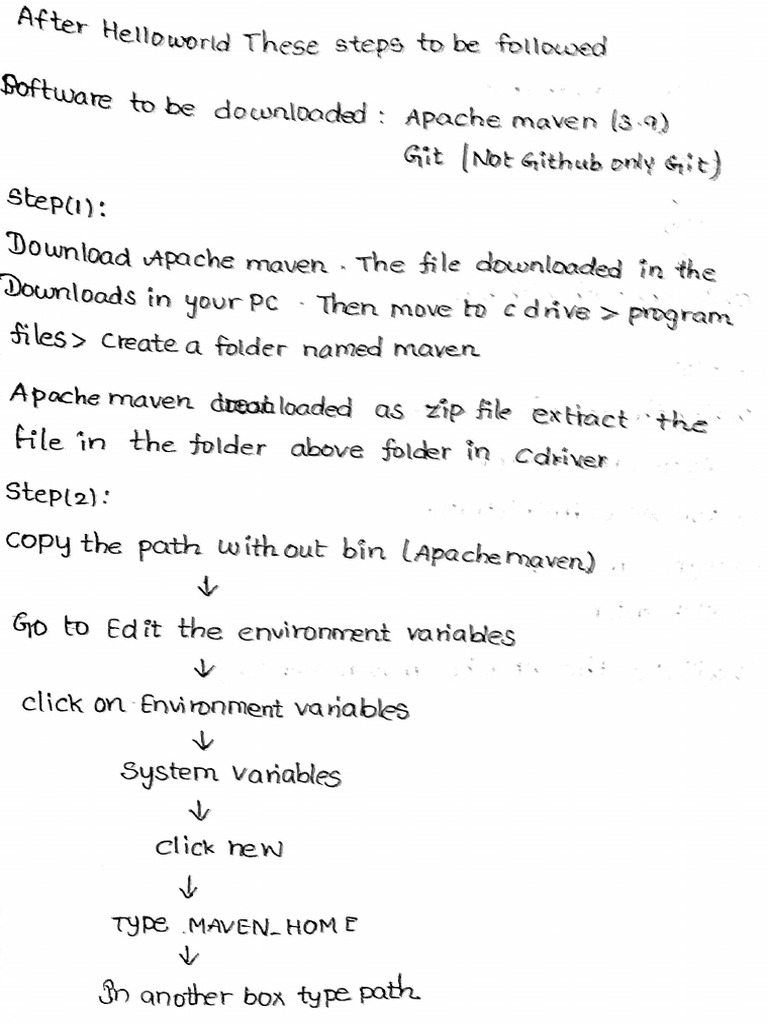 After Helloworld These steps to be followed
Software to be downloaded : Apache maven (3.9)
Git (Not Github only Git)
Step(1):
Download Apache maven . The file downloaded in the
Downloads in your PC . Then move to c drive > program
files > Create a folder named maven
Apache maven loaded as zip file extract the
file in the folder above folder in Cdriver.
Step(2):
copy the path without bin (Apache maven)
↓
Go to Edit the environment variables
↓
click on Environment variables
↓
System variables
↓
click new
↓
Type .MAVEN_HOME
↓
In another box type path